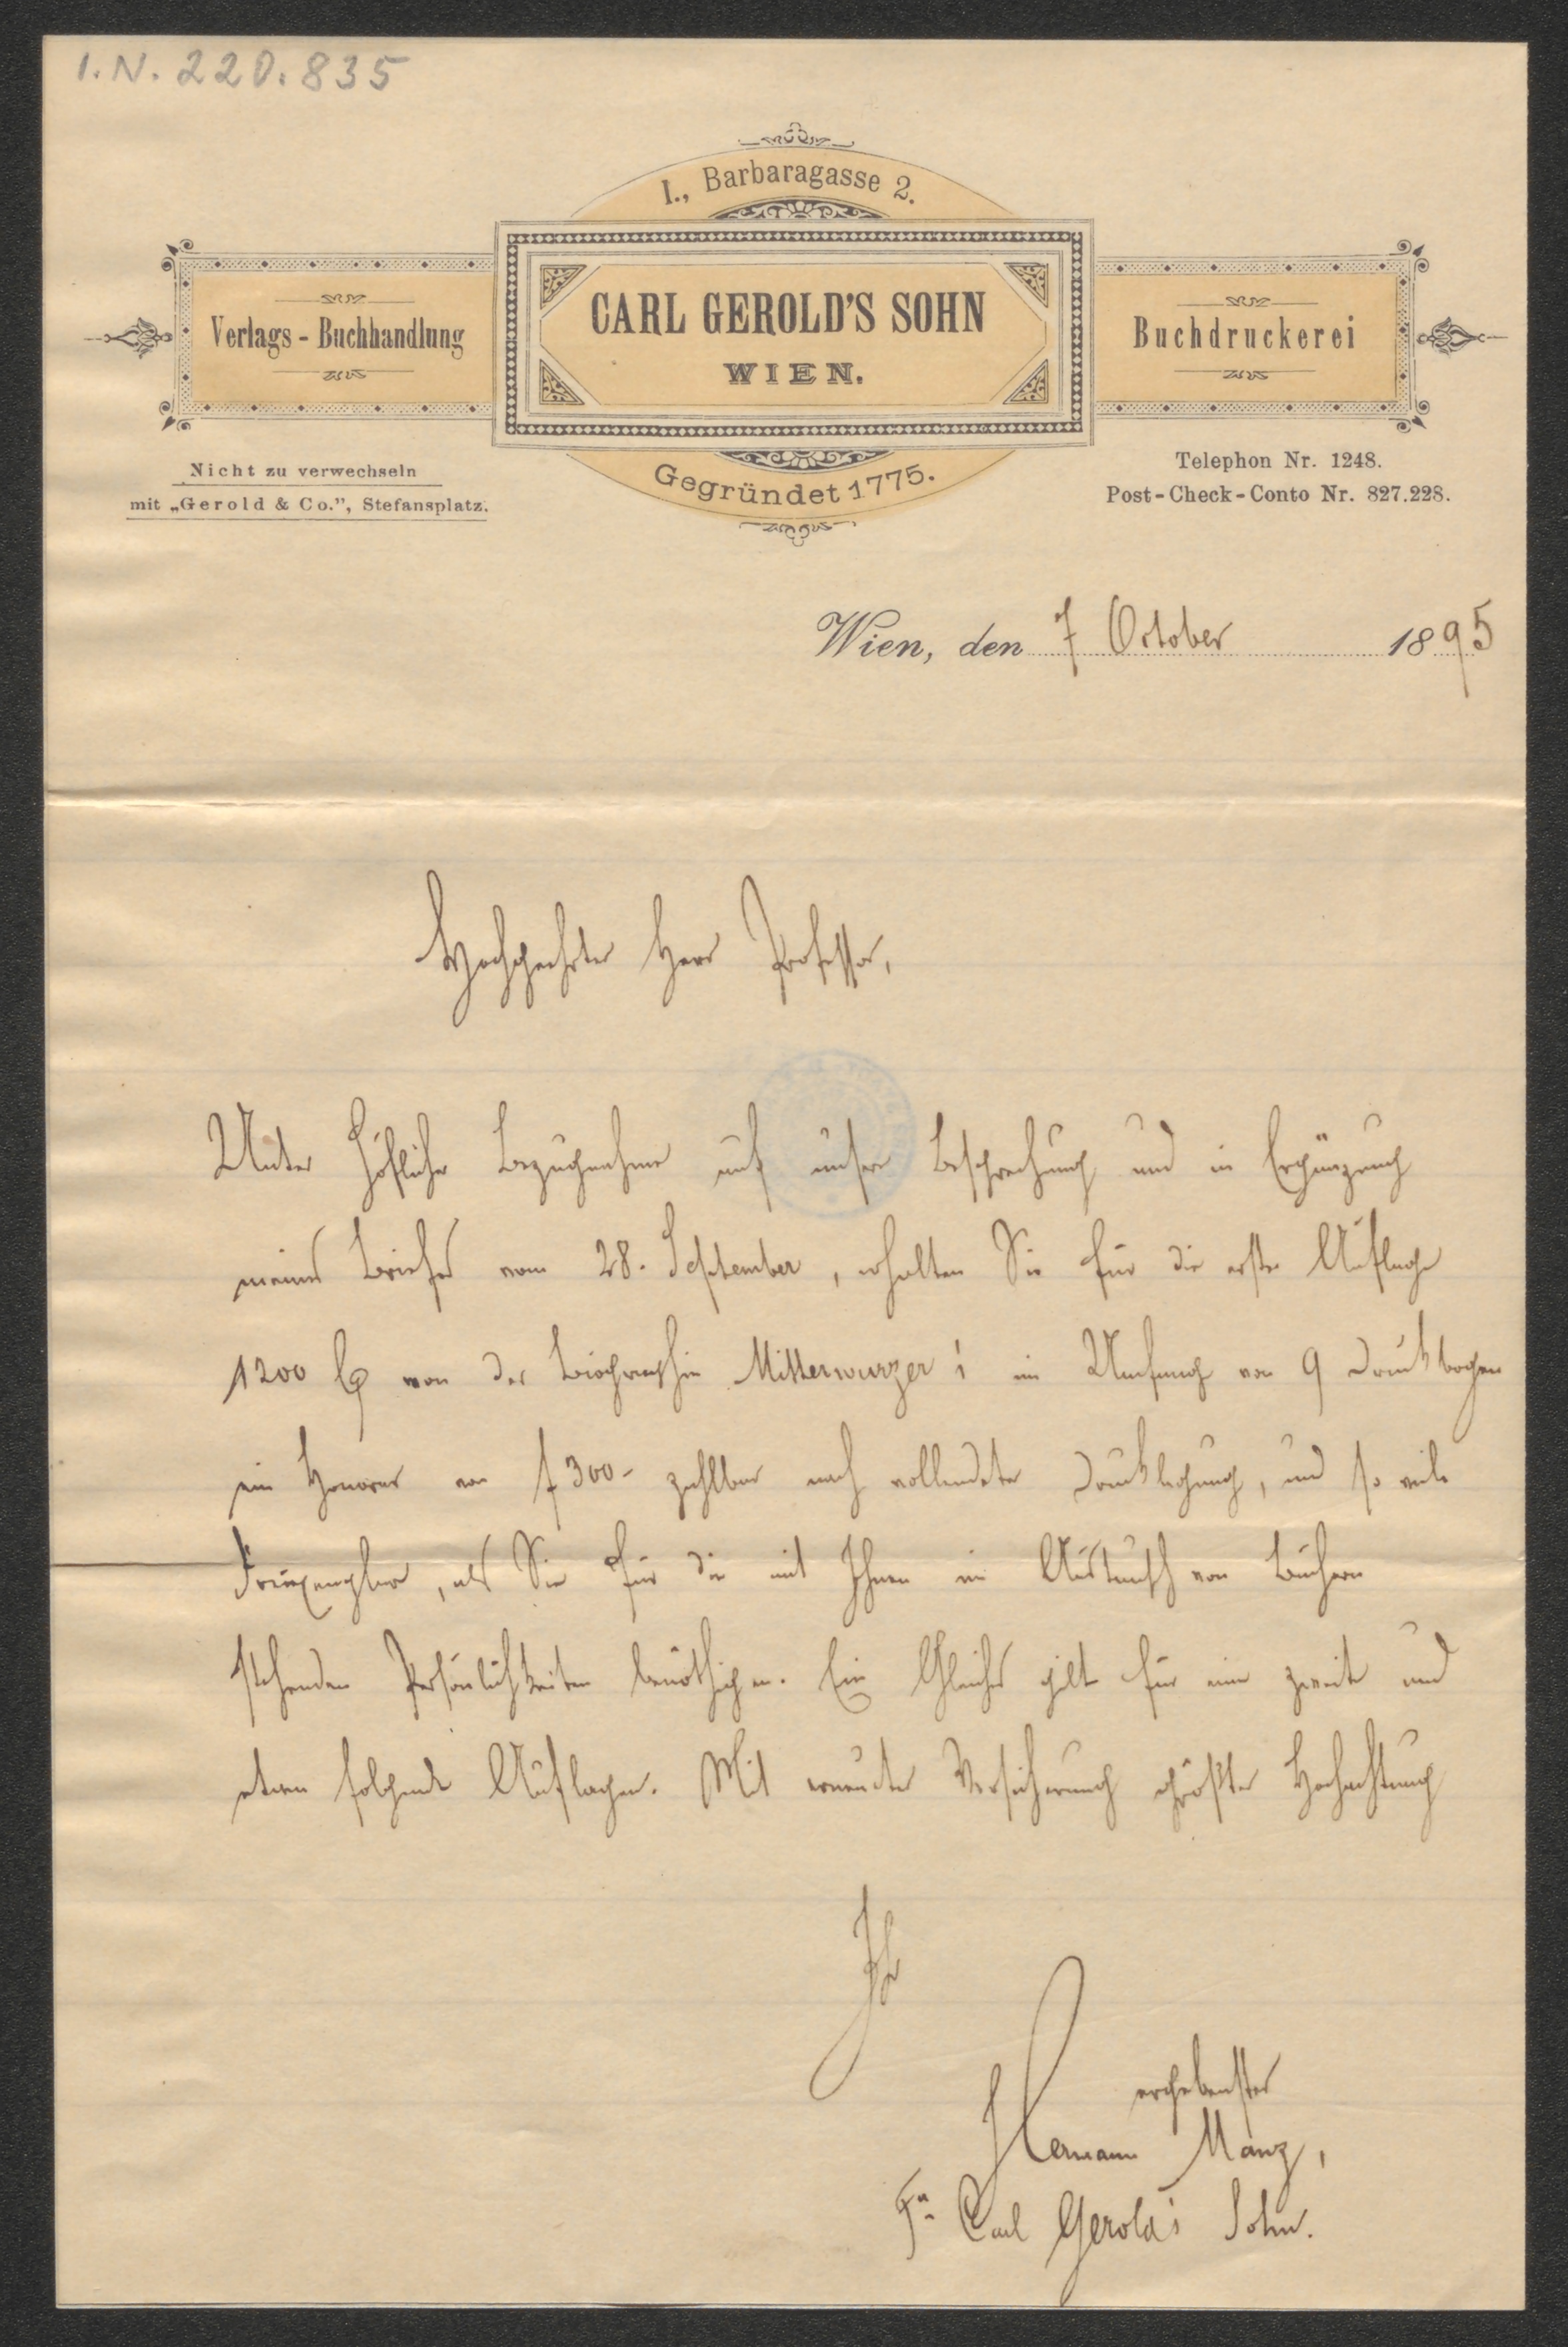 I.N. 220.835
I., Barbaragasse 2.
Verlags-Buchhandlung
CARL GEROLD'S SOHN
WIEN.
Buchdruckerei
Gegründet 1775.
Nicht zu verwechseln
mit „Gerold & Co.”, Stefansplatz.
Telephon Nr. 1248.
Post-Check-Conto Nr. 827.228.
Wien, den 7 October 1895
Hochgeehrter Herr Professor,
Unter höflicher Bezugnahme auf unsere Besprechung und in Ergänzung
meines Briefes vom 28. September, erhalten Sie für die erste Auflage
1200 von der Biographie Mitterwurzer's im Umfang von 9 Druckbogen
ein Honorar von f 300- zahlbar nach vollendeter Drucklegung, und so viele
Freiexemplare, als Sie für die mit Ihnen im Austausch von Büchern
stehenden Persönlichkeiten benöthigen. Ein Gleiches gilt für eine zweite und
etwa folgende Auflagen. Mit erneuter Versicherung größter Hochachtung
Ihr
ergebenster
Hermann Manz,
Fa Carl Gerold's Sohn.